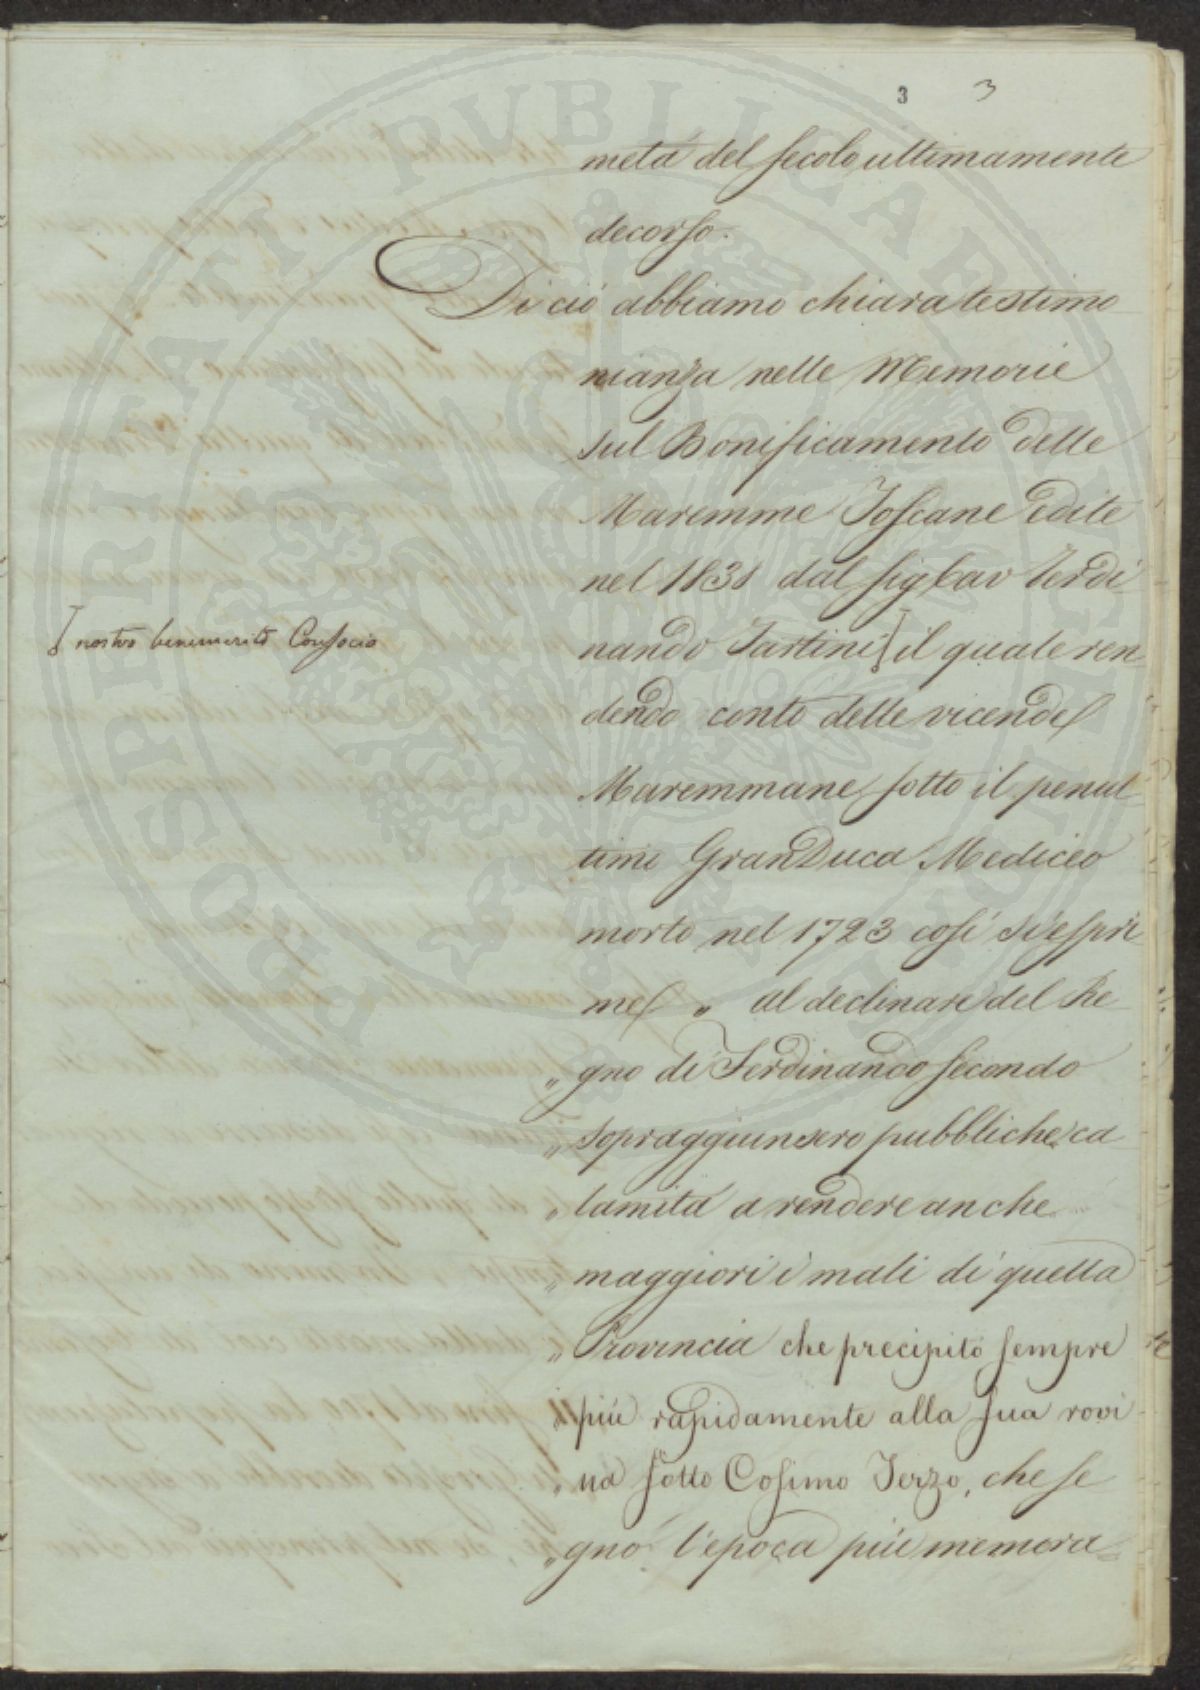 3 3
metà del secolo ultimamente
decorso.
Di ciò abbiamo chiara testimo
nianza nelle Memorie
sul Bonificamento delle
Maremme Toscane edite
nel 1838 dal sig Cav Ferdi
nando Tartini] il quale ren
] nostro benemerito Consocio
dendo conto delle vicende
Maremmane sotto il penul-
timo GranDuca Mediceo
morto nel 1723 così si espri-
me „ al declinare del Re-
„ gno di Ferdinando secondo
„ sopraggiunsero pubbliche ca
„ lamità a rendere anche
„ maggiori i mali di quella
„ Provincia che precipitò sempre
„ più rapidamente alla sua rovi
„ na sotto Cosimo Terzo, che se
„ gnò l'epoca più memora=
PROSPERITATI PUBLICAE AUGENDAE